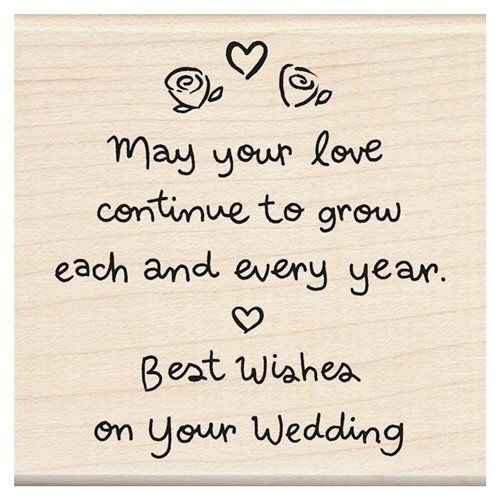 May your love
continue to grow
each and every year.
Best Wishes
on Your Wedding